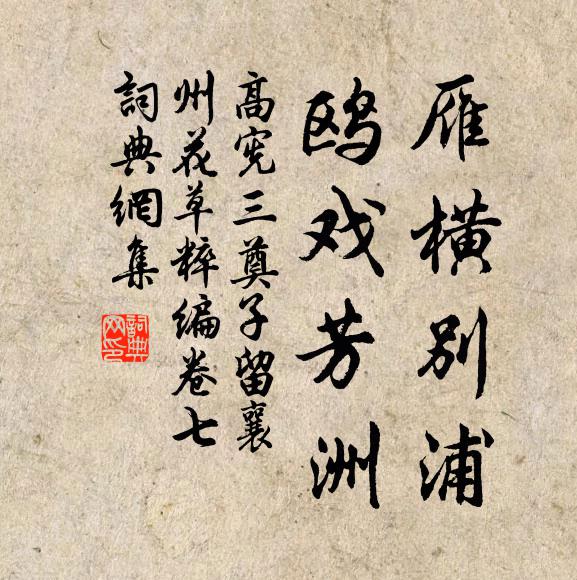 雁横別浦
鸥戏芳洲
高宪三奠子留襄
州花草粹编卷七
詞典網集
詞典网印